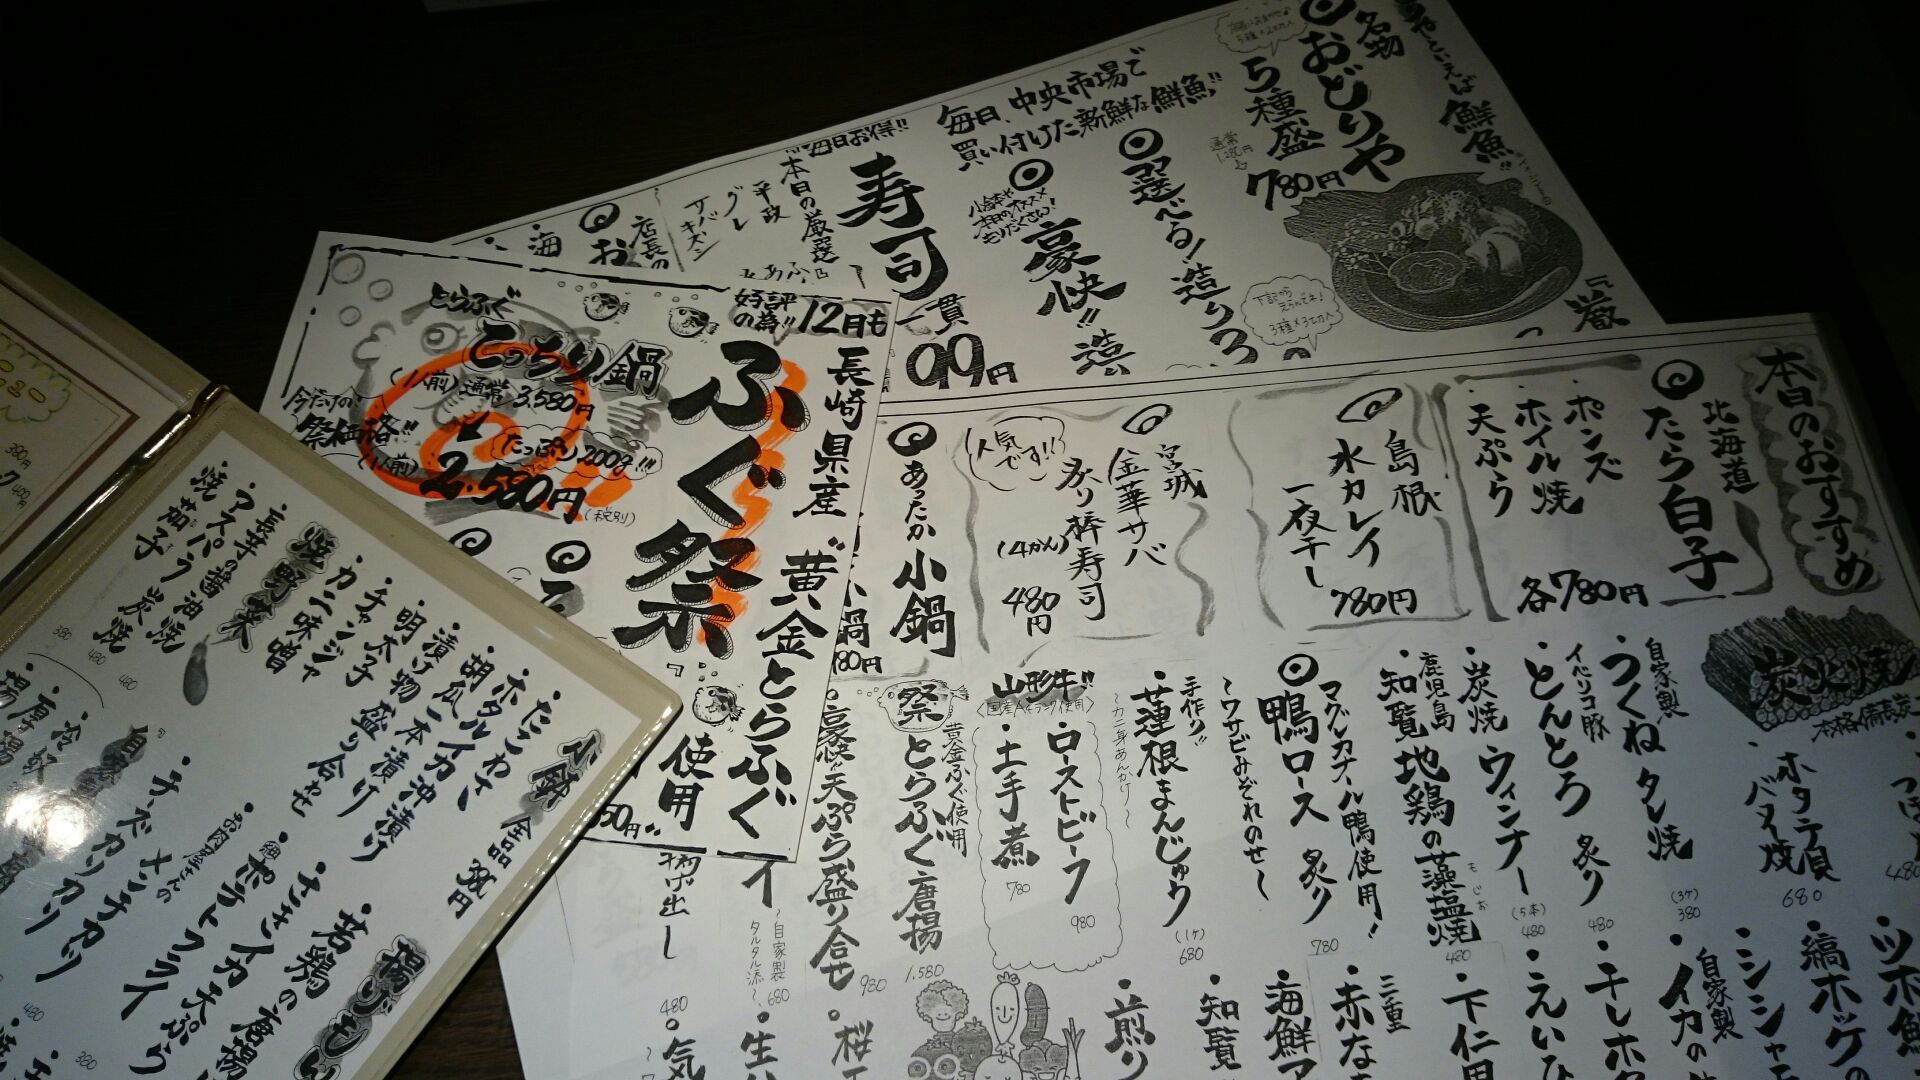 やといえば鮮魚!!
名物
おどりや
5種盛
通常1,280円
780円
選べる!造り3
下記からえらんでネ!
3種×3切入
毎日、中央市場で
買い付けた新鮮な鮮魚!!
豪快!!造り
毎日お得!!
寿司
一貫
99円
本日の厳選
平政
グレ
サバキズシ
店長の
お
海
好評の為!!
12月も
長崎県産"黄金とらふぐ
使用
ふぐ祭
とらふぐ
こっちり鍋
(1人前)通常3,580円
祭価格!!
たっぷり200g!!!
(1人前)
2,580円
(税別)
本日のおすすめ
北海道
たら白子
ポンズ
ホイル焼
天ぷら
各780円
島根
水カレイ
一夜干し
780円
宮城
金華サバ
炙り棒寿司
(4かん)
480円
人気です!!
あったか
小鍋
炭火焼
本格備長炭
ホタテ貝
バタ焼
680
自家製
つくね タレ焼
(3ケ)
380
イベリコ豚
とんとろ 炙り
480
炭焼ウィンナー
(5本)
480
鹿児島
知覧地鶏の藻塩焼
もじお
480
マグレカナール鴨使用!
鴨ロース 炙り
〜ワサビみぞれのせ〜
780
手作り!!
蓮根まんじゅう
〜カニ身あんかけ〜
(1ケ)
680
山形牛!!
ローストビーフ
980
土手煮
780
祭
黄金ふぐ使用
とらふぐ唐揚
1,580
豪快!!天ぷら盛り合せ
980
〜自家製タルタル添〜
680
480
ツホ鯛
縞ホッケの
シシャモ
自家製
イカの
干しホタ
えいひ
下仁田
三重
赤な
海鮮ア
知覧
煎り
桜
生
気
小鉢 全品380円
たこわさ
ホタルイカ沖漬け
胡瓜一本漬け
漬け物盛り合せ
明太子
チャンジャ
カニ味噌
焼野菜
長芋の醤油焼
アスパラ炭焼
焼茄子
380
480
480
揚げもん
若鶏の唐揚
さきイカ天ぷら
ポテトフライ
お肉屋さんの
メンチカツ
チーズカリカリ
冷奴
厚揚
480
380